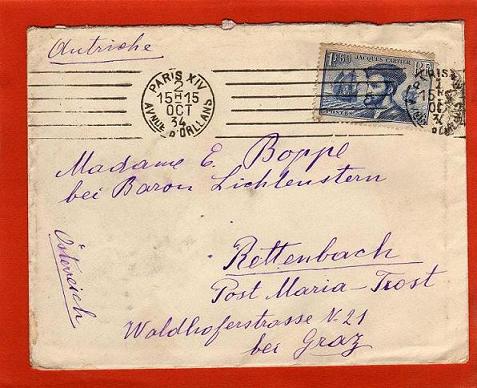 Autriche
PARIS XIV
2
15H15
OCT
34
AVNUE D'ORLEANS
1f50
JACQUES CARTIER
POSTES
PARIS
2
15H15
OCT
34
Madame E. Boppe
bei Baron Lichtenstern
Österreich
Rettenbach
Post Maria-Trost
Waldhoferstrasse N-21
bei Graz